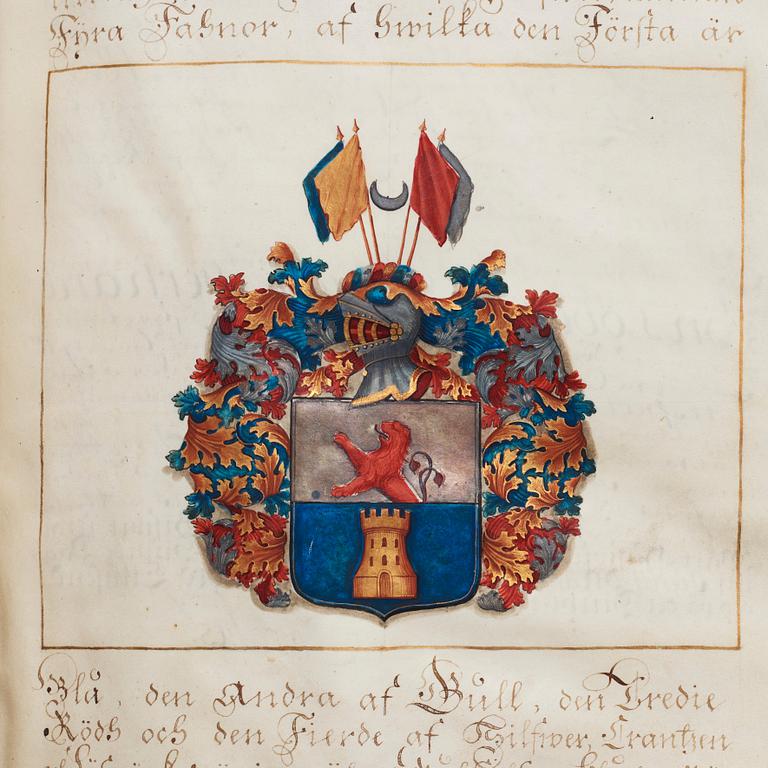 Fyra Fahnor, af hwilka den Första är
Blå, den Andra af Gull, den Tredie
Rödh och den Fierde af Silfwer, Crantzen